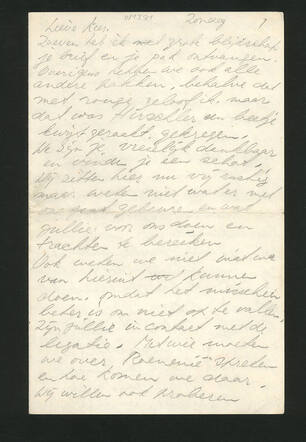 Zondag 1
Lieve Kees,
Zoeven heb ik met grote blijdschap
je brief en je pak ontvangen.
Overigens hebben we ook alle
andere pakken, behalve dat
met rouge geloof ik, maar
dat was Hirschler een beetje
kwijt geraakt, gekregen.
We zijn je vreselijk dankbaar
en vinden je een schat.
Wij zitten hier nu vrij rustig
maar weten niet wat er met
ons gaat gebeuren en wat
jullie voor ons doen en
trachten te bereiken
Ook weten we niet wat we
van hieruit kunnen
doen, omdat het misschien
beter is om niet op te vallen.
Zijn jullie in contact met de
legatie. Met wie moeten
we over Roemenië spreken
en hoe komen we daar.
Wij willen ook proberen